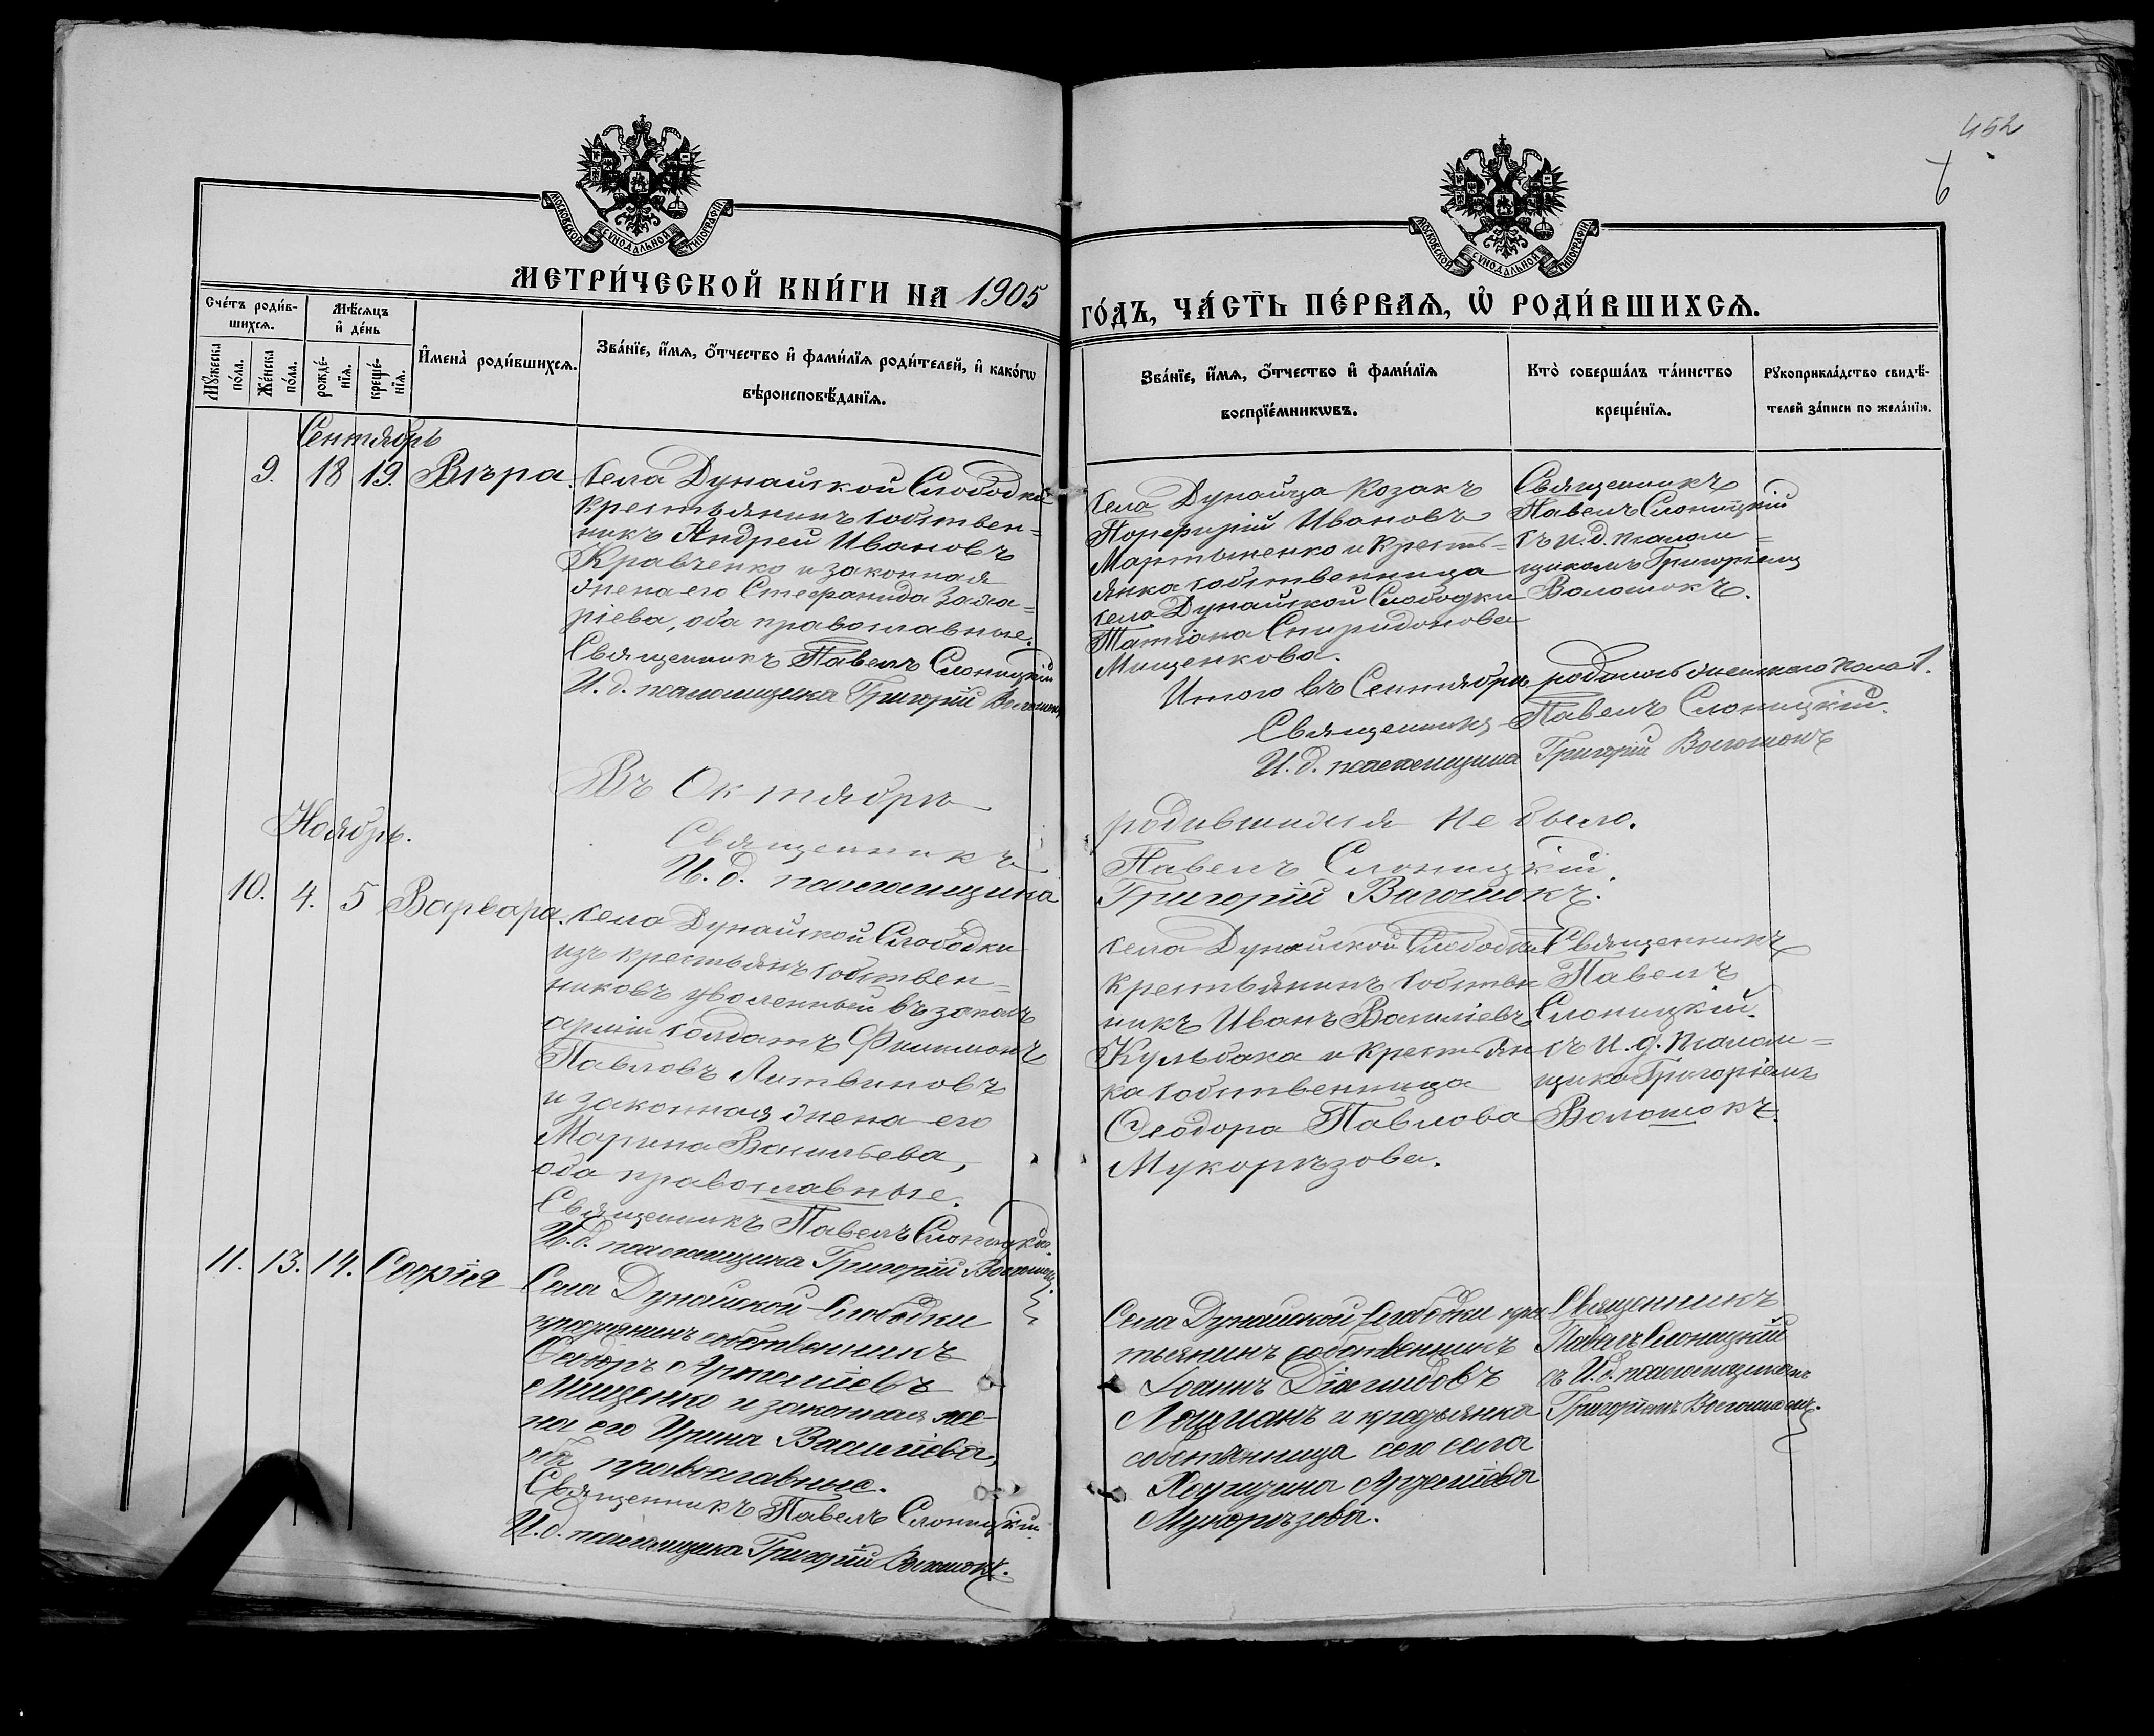 452
6
МОСКОВСКОЙ СѴНОДАЛЬНОЙ ТИПОГРАФІИ
МОСКОВСКОЙ СѴНОДАЛЬНОЙ ТИПОГРАФІИ
МЕТРИ́ЧЕСКОЙ КНИ́ГИ НА 1905
ГО́ДЪ, ЧА́СТЬ ПЕ́РВАЯ, Ѡ РОДИ́ВШИХСЯ.
Сче́тъ роди́в-
шихся.
Мѣ́сяцъ
и де́нь
Мꙋжеска по́ла.
Же́нска по́ла.
рожде́-
нїя.
креще́-
нїя.
Имена̀ роди́вшихся.
Зва́нїе, и́мя, о́тчество и фами́лїя роди́телей, и како́гѡ
вѣроисповѣ́данїя.
Зва́нїе, и́мя, о́тчество и фами́лїя
воспрїе́мникѡвъ.
Кто̀ соверша́лъ та́инство
креще́нїя.
Рꙋкоприкла́дство свидѣ́-
телей за́писи по жела́нїю.
Сентябрь
9. 18 19. Вѣра.
Села Дунайской Слободки
крестьянинъ собствен=
никъ Андрей Ивановъ
Кравченко и законная
жена его Стефанида Заха=
ріева, оба православные.
Священникъ Павелъ Слоницкій
И. д. псаломщика Григорій Волошокъ
Села Дунайца козакъ
Порфирій Ивановъ
Мартыненко и кресть=
янка собственница
села Дунайской Слободки
Татіана Спиридонова
Мищенкова.
Священникъ
Павелъ Слоницкій
съ и. д. псалом=
щикомъ Григоріемъ
Волошокъ.
Итого въ Сентябрѣ родилось женскаго пола 1.
Священникъ Павелъ Слоницкій.
И. д. псаломщика Григорій Волошокъ
Въ Октябрѣ родившихся не было.
Священникъ Павелъ Слоницкій.
И. д. псаломщика Григорій Волошокъ.
Ноябрь.
10. 4. 5 Варвара.
Села Дунайской Слободки
изъ крестьянъ собствен=
никовъ уволенный въ запасъ
арміи солдатъ Филимонъ
Павловъ Литвиновъ
и законная жена его
Марина Васильева,
оба православные.
Священникъ Павелъ Слоницкій.
И. д. псаломщика Григорій Волошокъ.
Села Дунайской Слободки
крестьянинъ собствен
никъ Иванъ Василіевъ
Кульбака и крестьян
ка собственница
Ѳеодора Павлова
Мукорѣзова.
Священникъ
Павелъ
Слоницкій.
съ и. д. псалом=
щика Григоріемъ
Волошокъ.
11. 13. 14. Софія
Села Дунайской Слободки
крестьянинъ собственникъ
Ѳеодоръ Артеміевъ
Мищенко и законная же-
на его Ирина Василіева,
оба православные.
Священникъ Павелъ Слоницкій.
И. д. псаломщика Григорій Волошокъ.
Села Дунайской Слободки крес
тьянинъ собственникъ
Іоаннъ Діомидовъ
Лоцманъ и крестьянка
собственница сего села
Артеміева
Мукорѣзова.
Священникъ
Павелъ Слоницкій
съ И. д. псаломщикомъ
Григоріемъ Волошокъ.